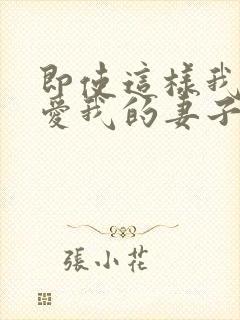 即使這樣我
愛我的妻子
張小花